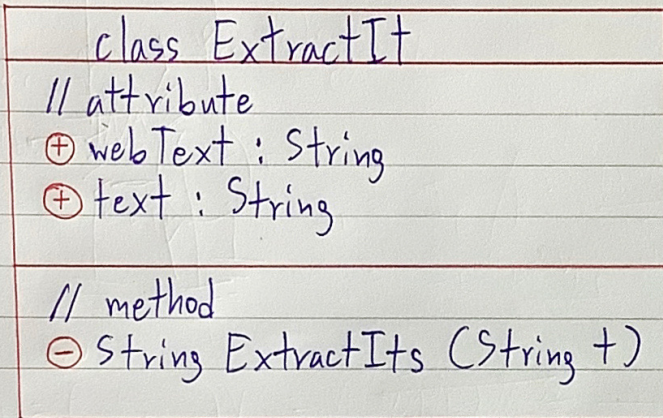 class ExtractIt
// attribute
⊕ webText : String
⊕ text : String
// method
⊖ String ExtractIts (String t)